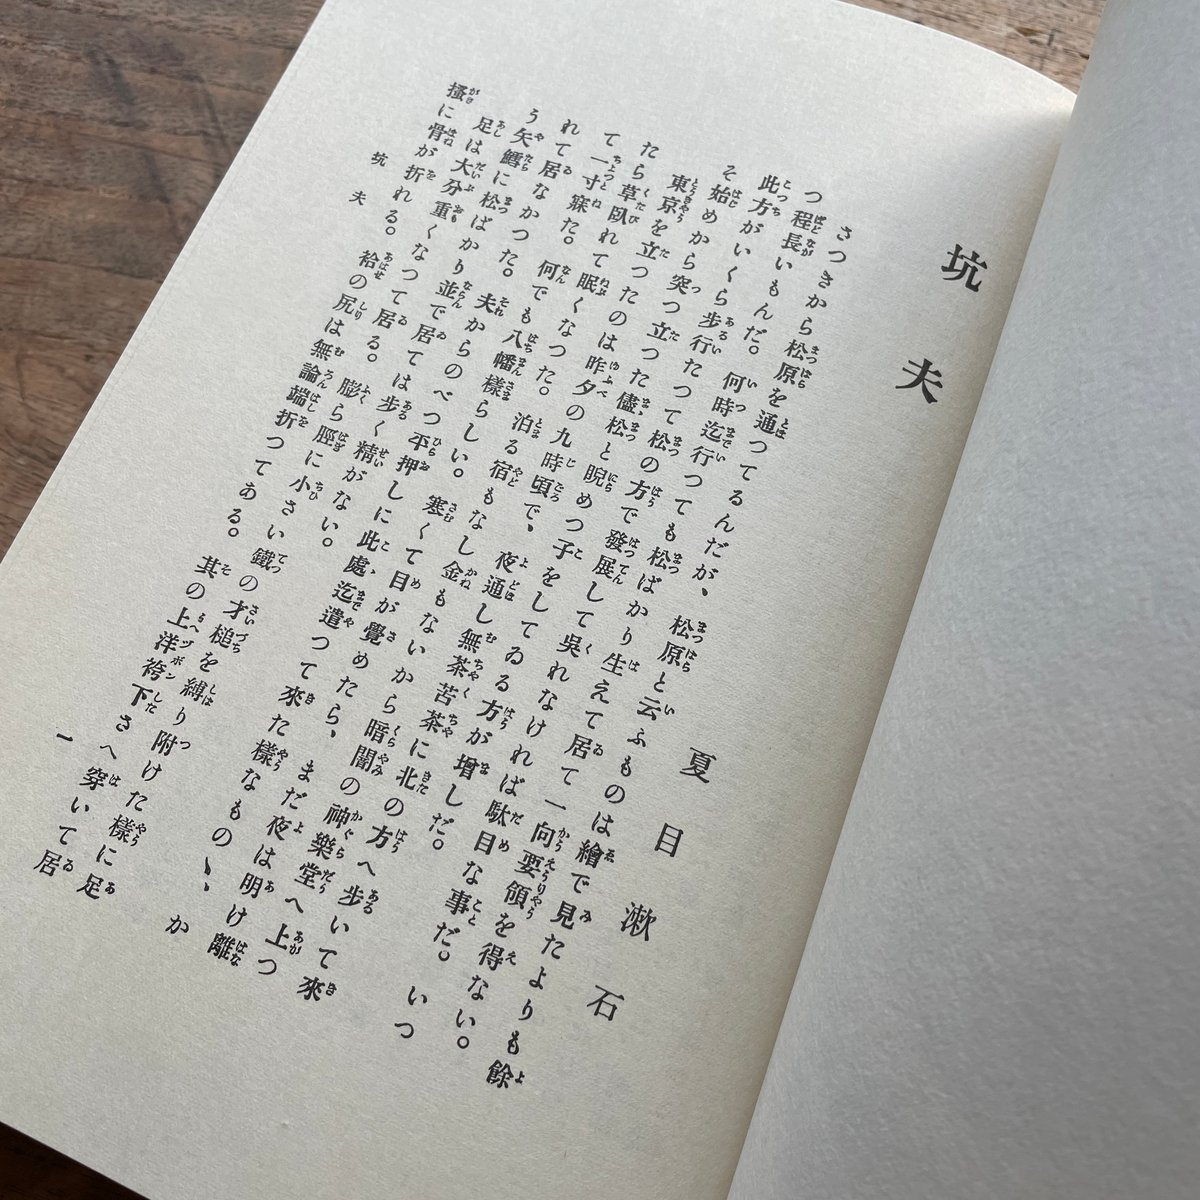 坑夫
夏目漱石
さつきから松原を通つてるんだが、松原と云ふものは繪で見たよりも餘
つ程長いもんだ。何時迄行つても松ばかり生えて居て一向要領を得ない。
此方がいくら歩行たつて松の方で發展して呉れなければ駄目な事だ。いつ
そ始めから突つ立つた儘松と睨めつ子をしてゐる方が增しだ。
東京を立つたのは昨夕の九時頃で、夜通し無茶苦茶に北の方へ步いて來
たら草臥れて眠くなつた。泊る宿もなし金もないから暗闇の神樂堂へ上つ
て一寸寐た。何でも八幡樣らしい。寒くて目が覺めたら、まだ夜は明け離
れて居なかつた。夫からのべつ平押しに此處迄遣つて來た樣なものゝ、か
う矢鱈に松ばかり並で居ては步く精がない。
足は大分重くなつて居る。膨ら脛に小さい鐵の才槌を縛り附けた樣に足
搔に骨が折れる。袷の尻は無論端折つてある。其の上洋袴下さへ穿いて居
坑夫
一